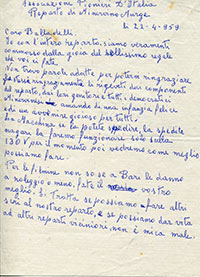 Associazione Pionieri D'Italia
Reparto di Minervino Murge
li 23-4-959
Caro
Io con l'intero reparto, siamo veramente
commosso dalla gioia del bellissimo regalo
che voi ci fate.
Non trovo parole adatte per potervi ringraziare
sinceramente le rigenti dar componenti
del reparto, dai loro genitori e tutti i democratici
Minervinesi amando di una infanzia felice
e di un avvenire gioioso per tutti.
La Macchina se la potete spedire, la spedite
magari la faremo funzionare solo sulla
130 V per il momento poi vedremo come meglio
possiamo fare.
Per le filmine non so se a Bari le danno
a noleggio o meno, fate il vostro
meglio. Si Tratta se possiamo fare altri
simi al nostro reparto, e se possiamo dar vita
ad altri reparti viciniori non è mica male.